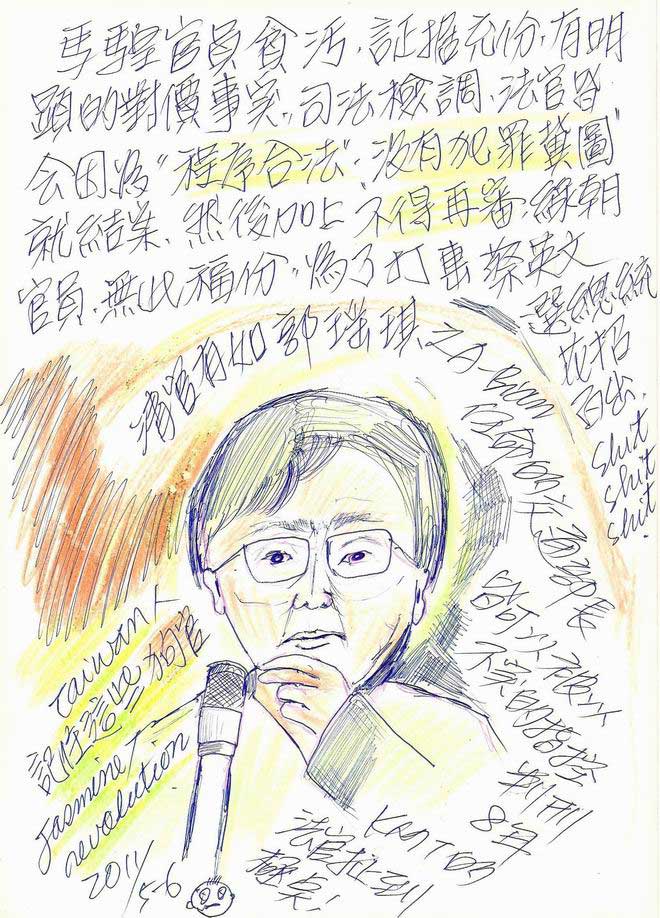 馬騜官員貪污,証據充份,有明
顯的對價事実,司法檢調、法官皆
会因為"程序合法","没有犯罪藍圖"
就結案,然後加上不得再審,綠朝
官員,無此福份,為了打蔡英文
選總統
花招
百出,
Shit
shit
shit!
清官有如郭瑤琪
A-Bian
交通部長
皆可以被以
不実的指控
判刑
8年
KMT的
法官扯到
極点!
Taiwan
記住這些狗官
Jasmine
revolution
2011/5-6